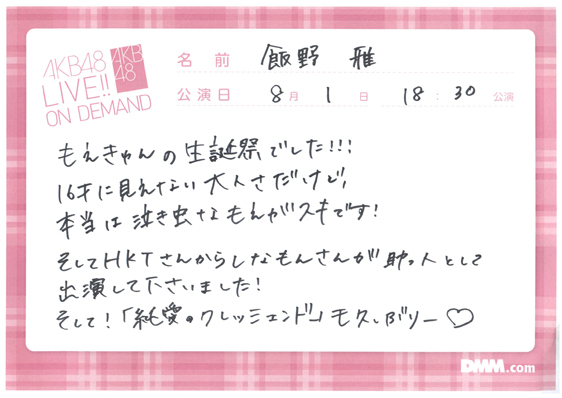 AKB48
LIVE!!
ON DEMAND
AKB
48
名前 飯野 雅
公演日 8月 1日 18:30 公演
もえきゅんの生誕祭でした!!!
16才に見えない大人さだけど、
本当は泣き虫なもえがスキです!
そしてHKTさんからしなもんさんが助っ人として
出演して下さいました!
そして!「純愛のクレッシェンド」モクバリー♡
DMM.com